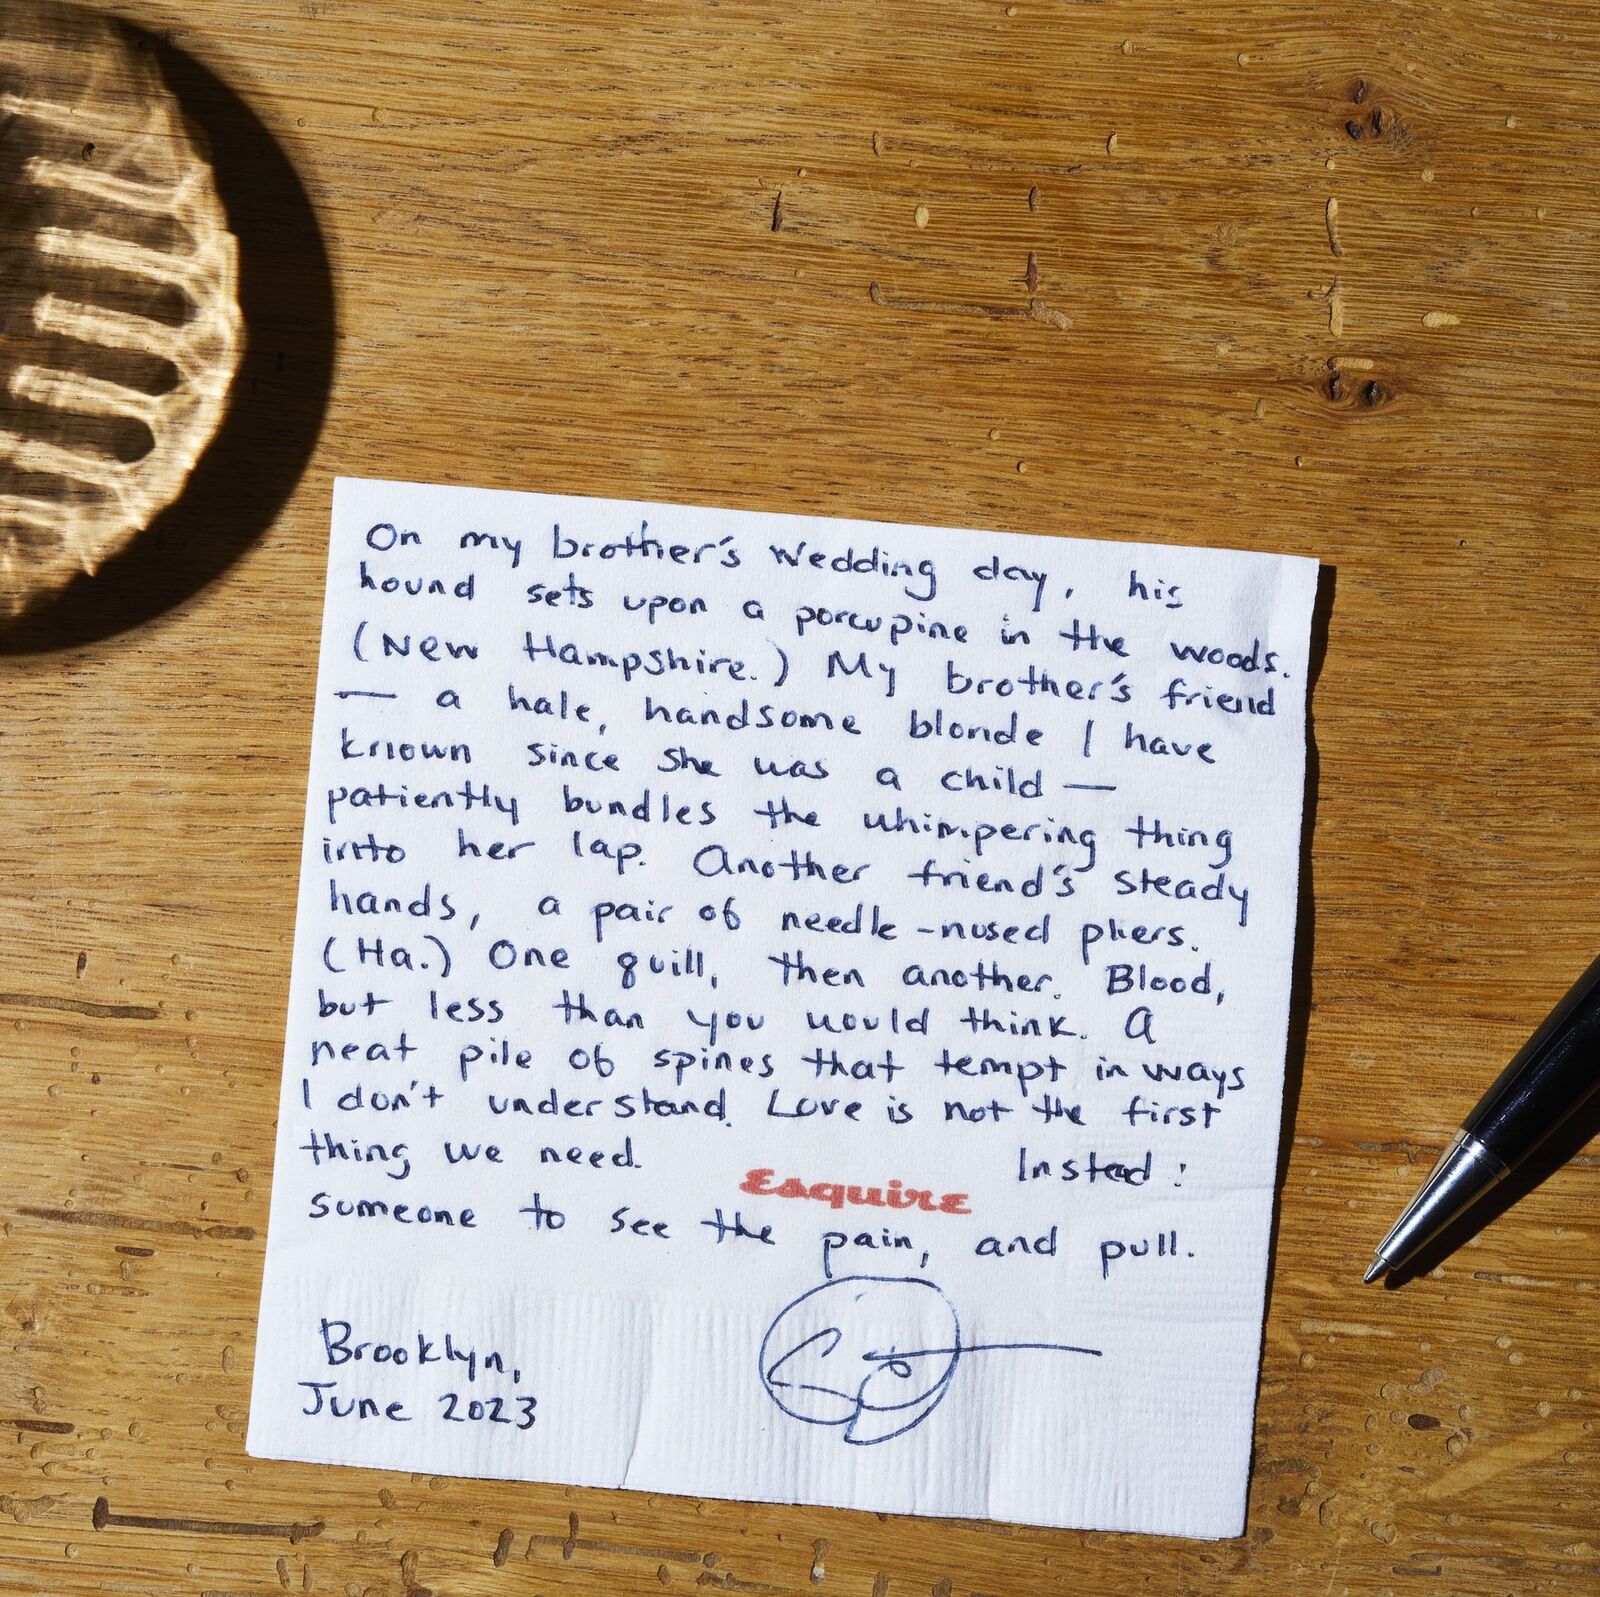 On my brother's wedding day, his
hound sets upon a porcupine in the woods.
(New Hampshire.) My brother's friend
— a hale, handsome blonde I have
known since she was a child —
patiently bundles the whimpering thing
into her lap. Another friend's steady
hands, a pair of needle-nosed pliers.
(Ha.) One quill, then another. Blood,
but less than you would think. A
neat pile of spines that tempt in ways
I don't understand. Love is not the first
thing we need. Instead:
Esquire
someone to see the pain, and pull.
Brooklyn,
June 2023